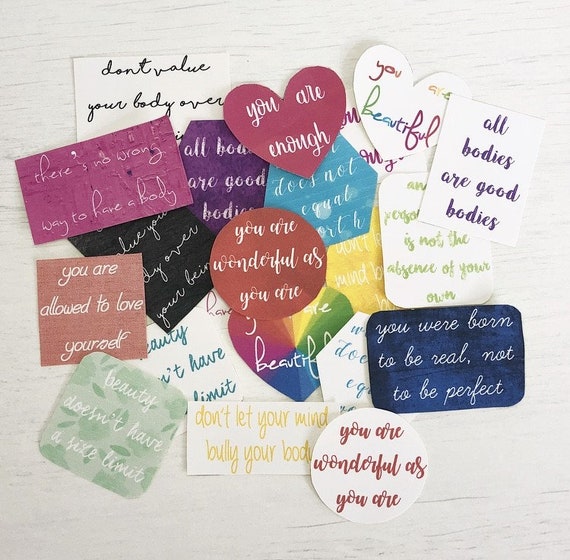 don't value
your body over
you are
enough
you are
beautiful
there's no wrong
way to have a body
all bodies
are good
bodies
does not
equal
all
bodies
are good
bodies
value you
body over
your being
you are
wonderful as
you are
don't
your mind
bully your
body
is not the
absence of your
own
you are
allowed to love
yourself
you are
beautiful
beauty
doesn't have
limit
does
equal
you were born
to be real, not
to be perfect
beauty
doesn't have
a size limit
don't let your mind
bully your body
you are
wonderful as
you are